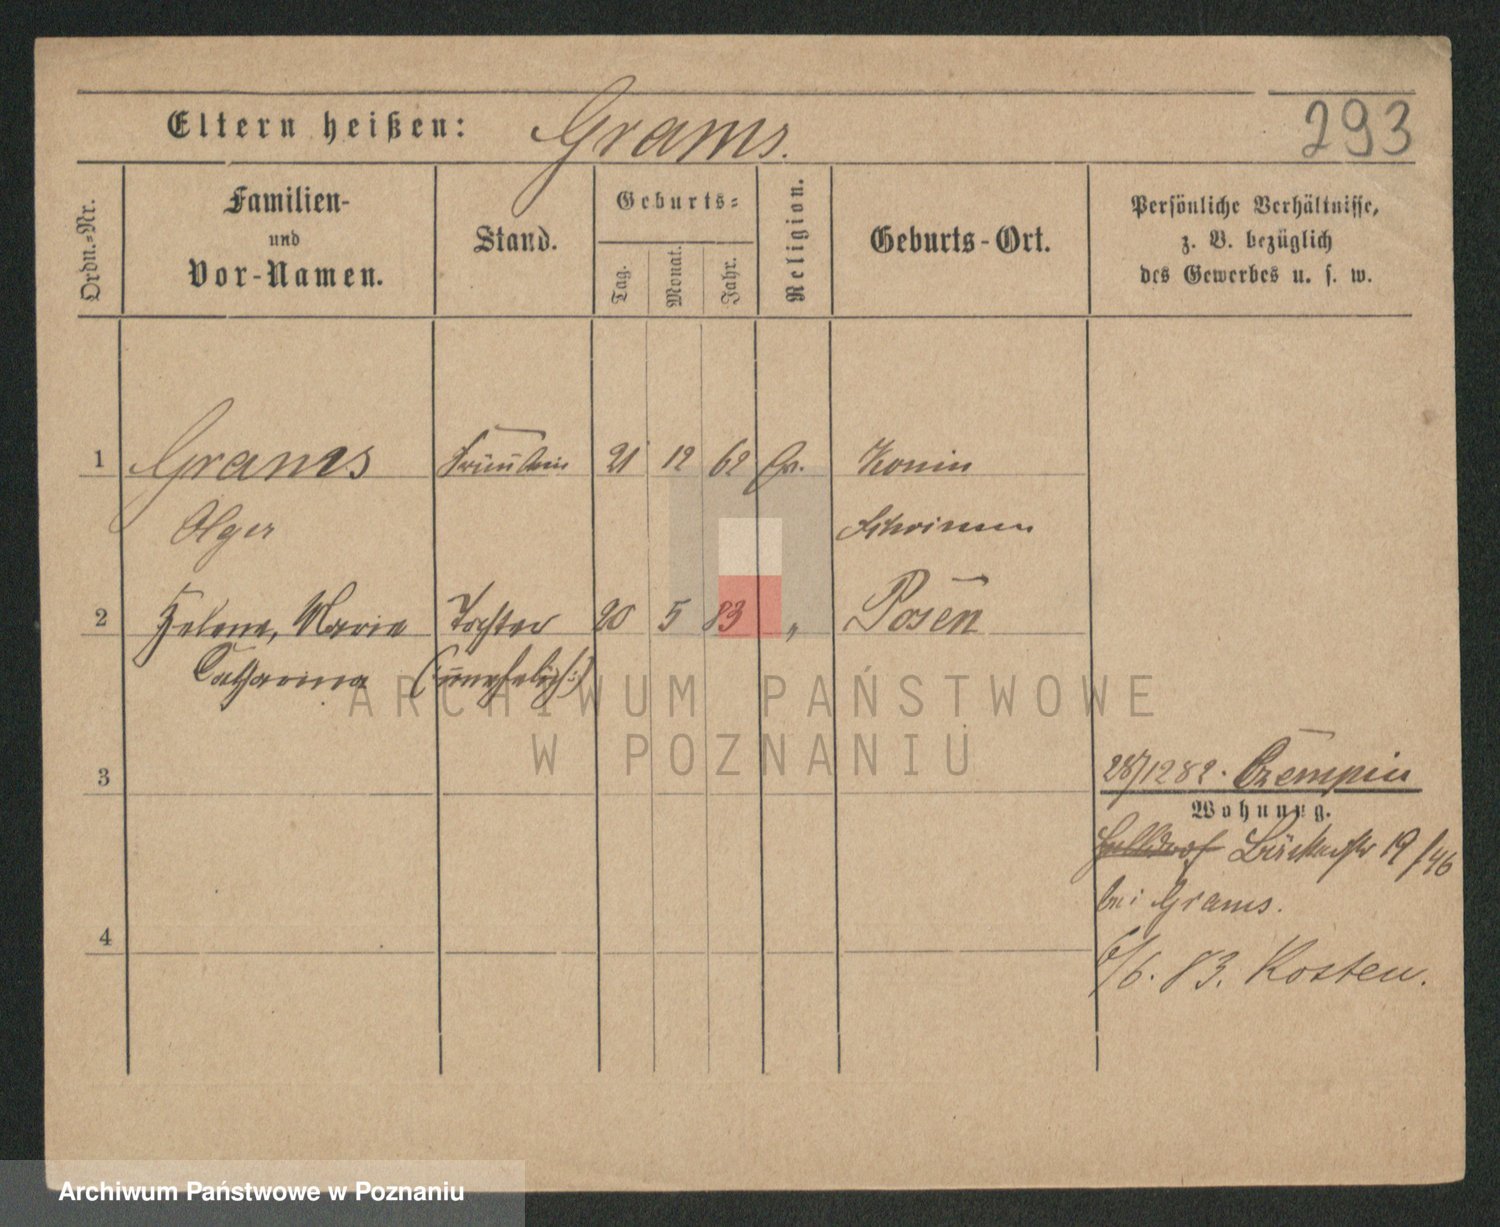 Eltern heißen: Grams. 293
Ordn.-Nr.
Familien-
und
Vor-Namen.
Stand.
Geburts-
Tag.
Monat.
Jahr.
Religion.
Geburts-Ort.
Persönliche Verhältnisse,
z. B. bezüglich
des Gewerbes u. s. w.
1 Grams 21 12 62 Konin
2 Helene, Marie Tochter 20 5 83 " Posen
Catharina (unehelich:)
ARCHIWUM PAŃSTWOWE
W POZNANIU
3
28/12 82. Czempin
Wohnung.
19/46
bei Grams.
4
6/6. 83. Kosten.
Archiwum Państwowe w Poznaniu